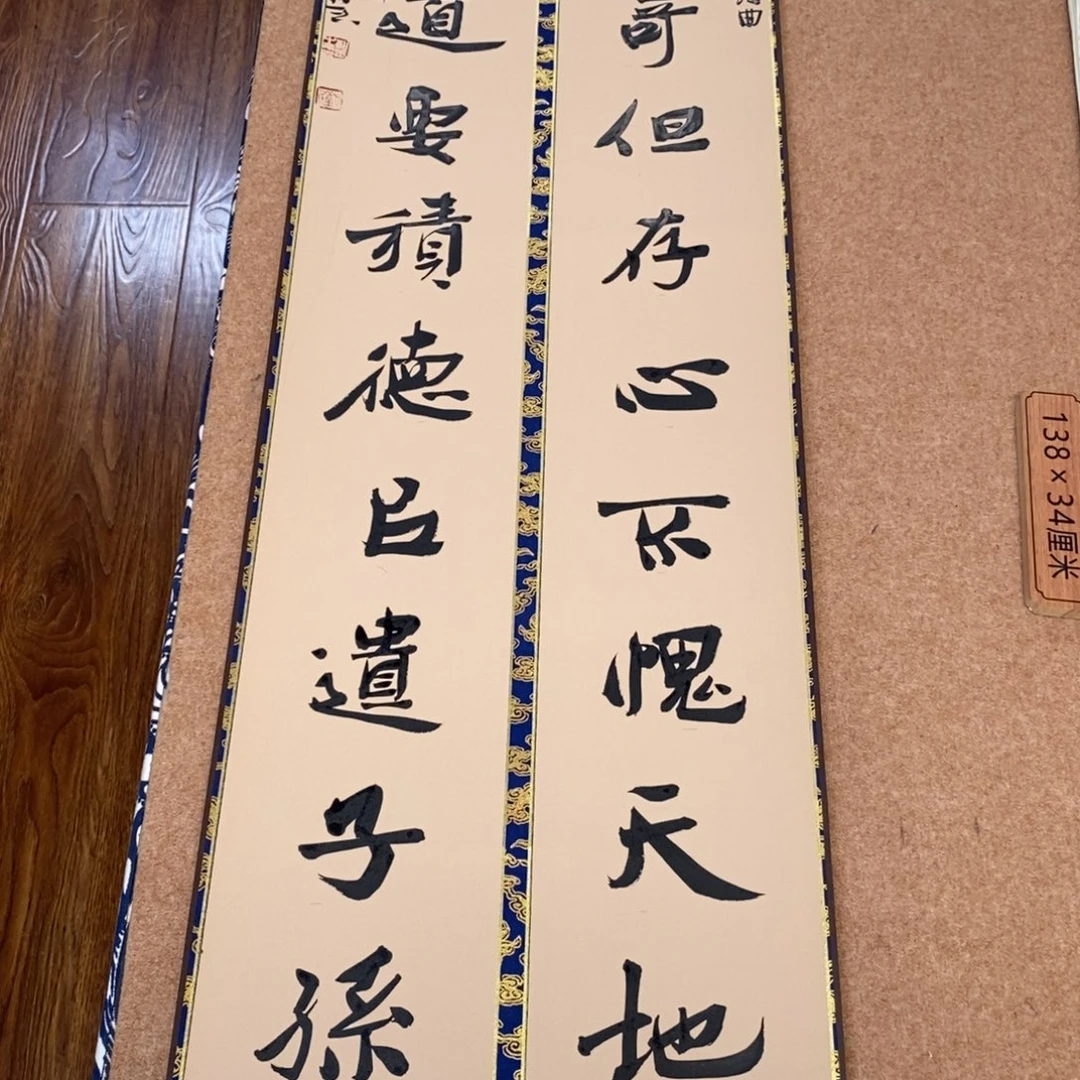 奇但存心不愧天地
道要積德㠯遺子孫
曲
138×34厘米